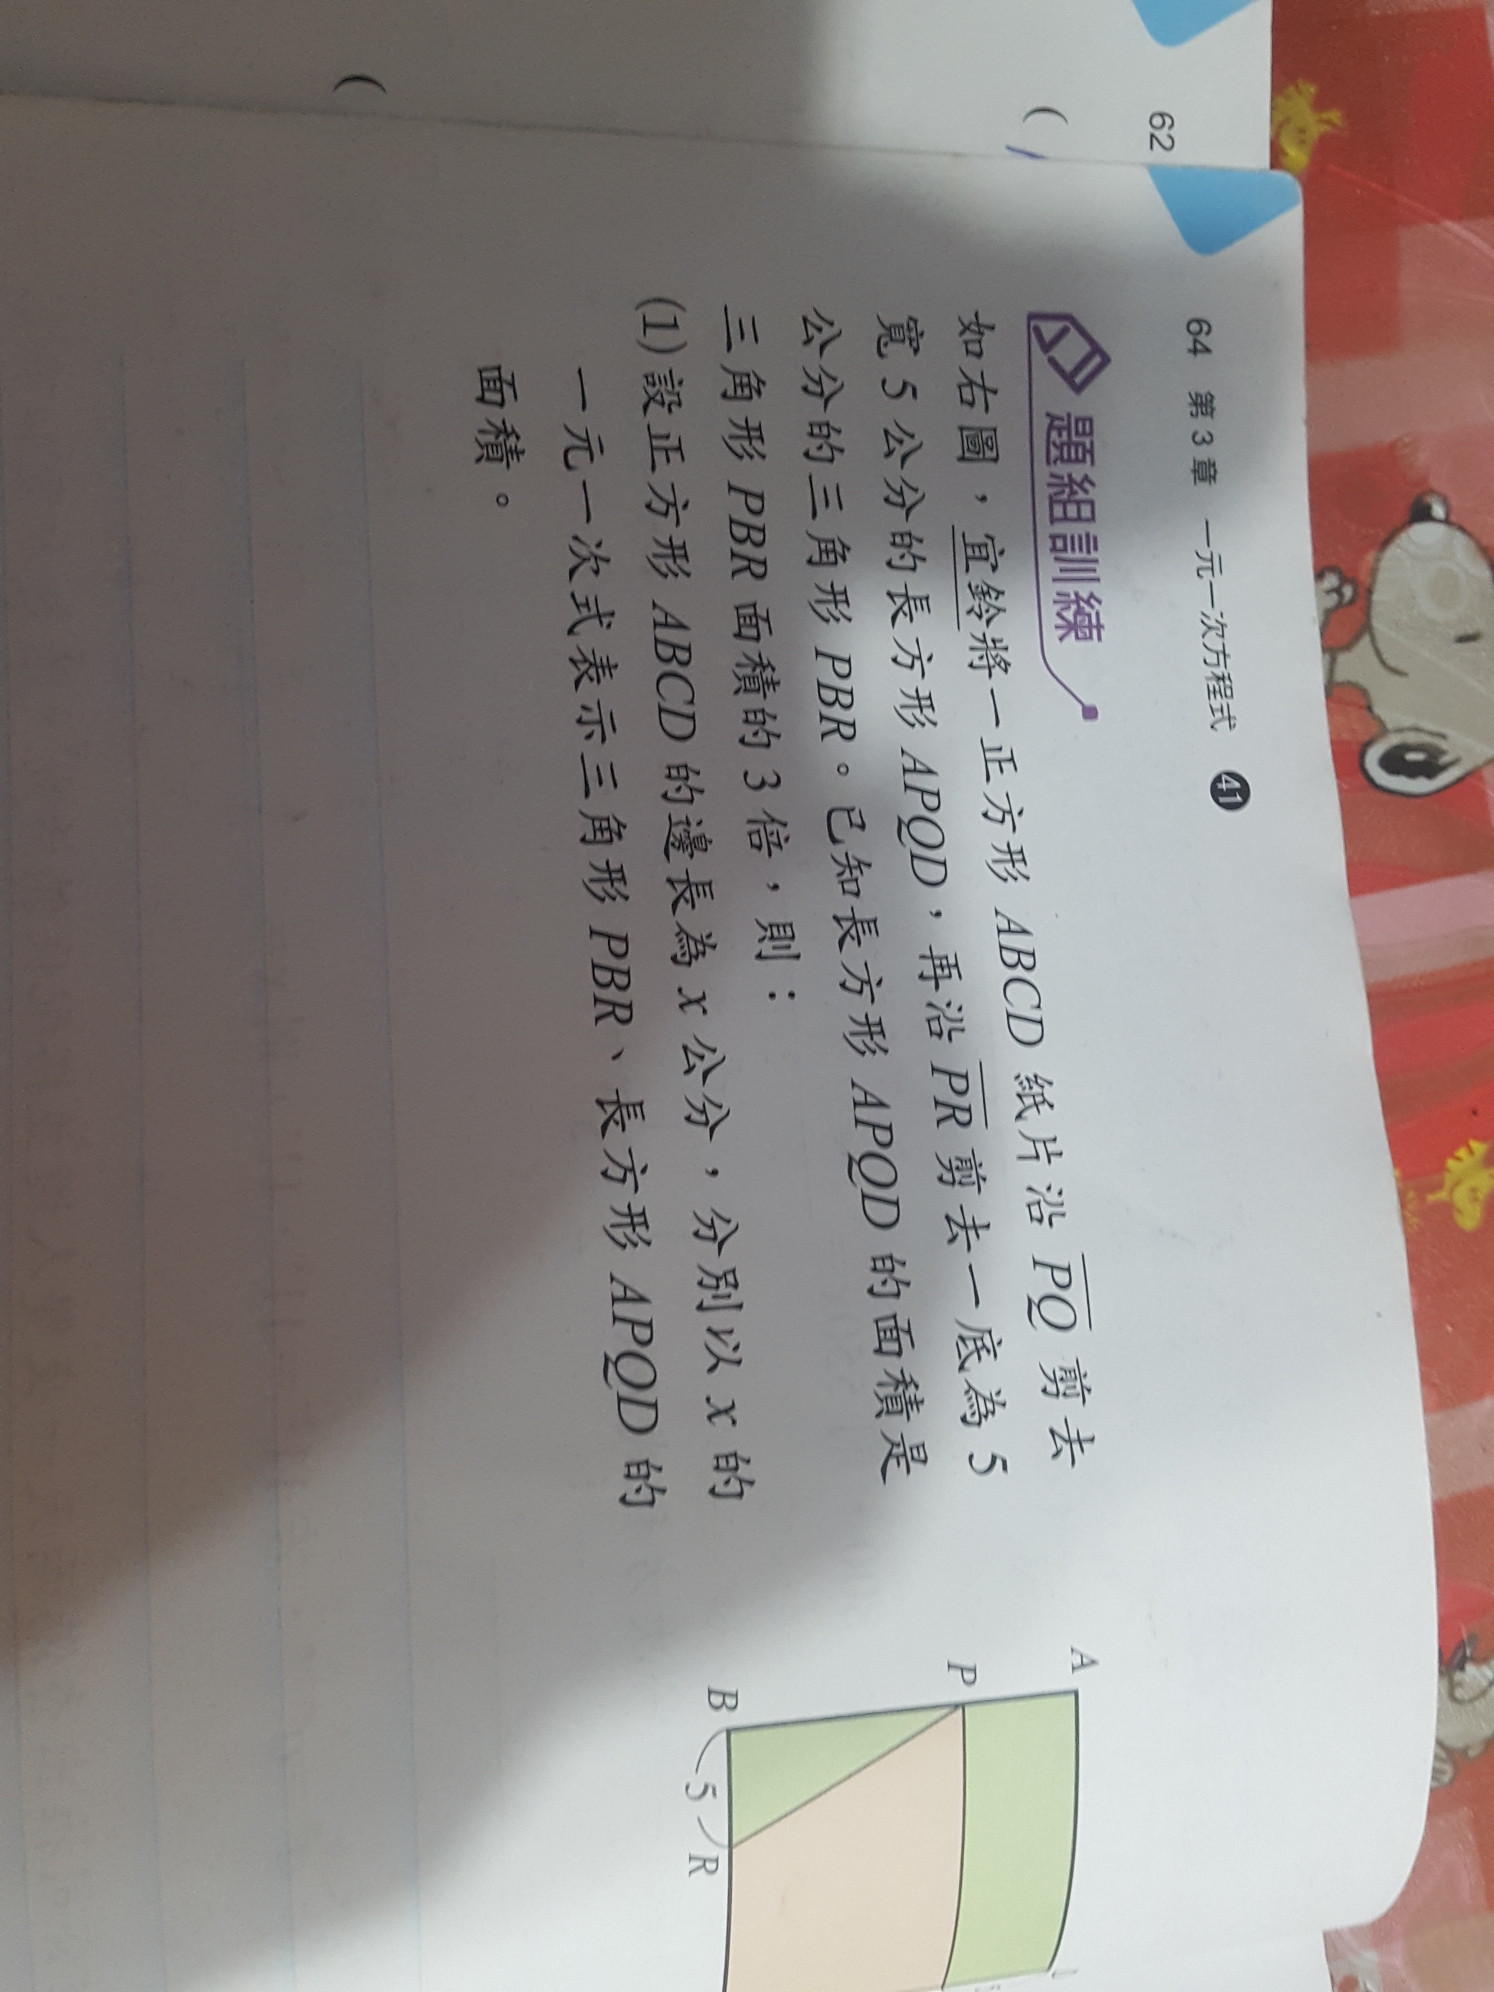 62
(
(
64 第3章 一元一次方程式 41
題組訓練
如右圖，宜鈴將一正方形 ABCD 紙片沿 PQ 剪去
寬 5 公分的長方形 APQD，再沿 PR 剪去一底為 5
公分的三角形 PBR。已知長方形 APQD 的面積是
三角形 PBR 面積的 3 倍，則：
(1)設正方形 ABCD 的邊長為 x 公分，分別以 x 的
一元一次式表示三角形 PBR、長方形 APQD 的
面積。
A
P
B
5
R